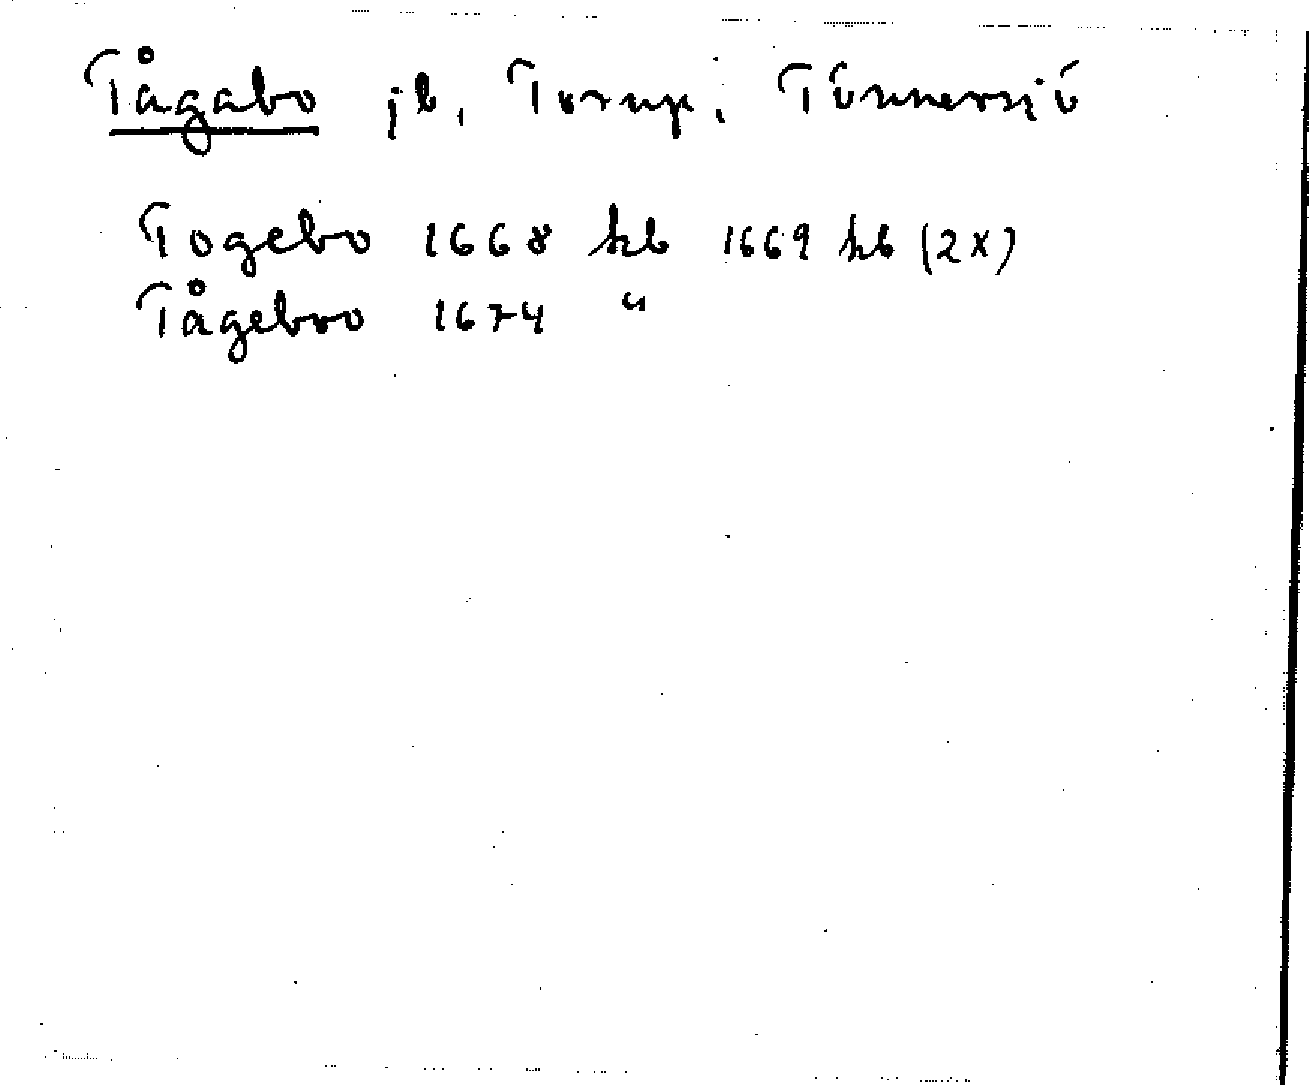 Tågabo jb, Torup, Tönnersjö
Togebo 1668 hb 1669 hb (2x)
Tågeboo 1674 "